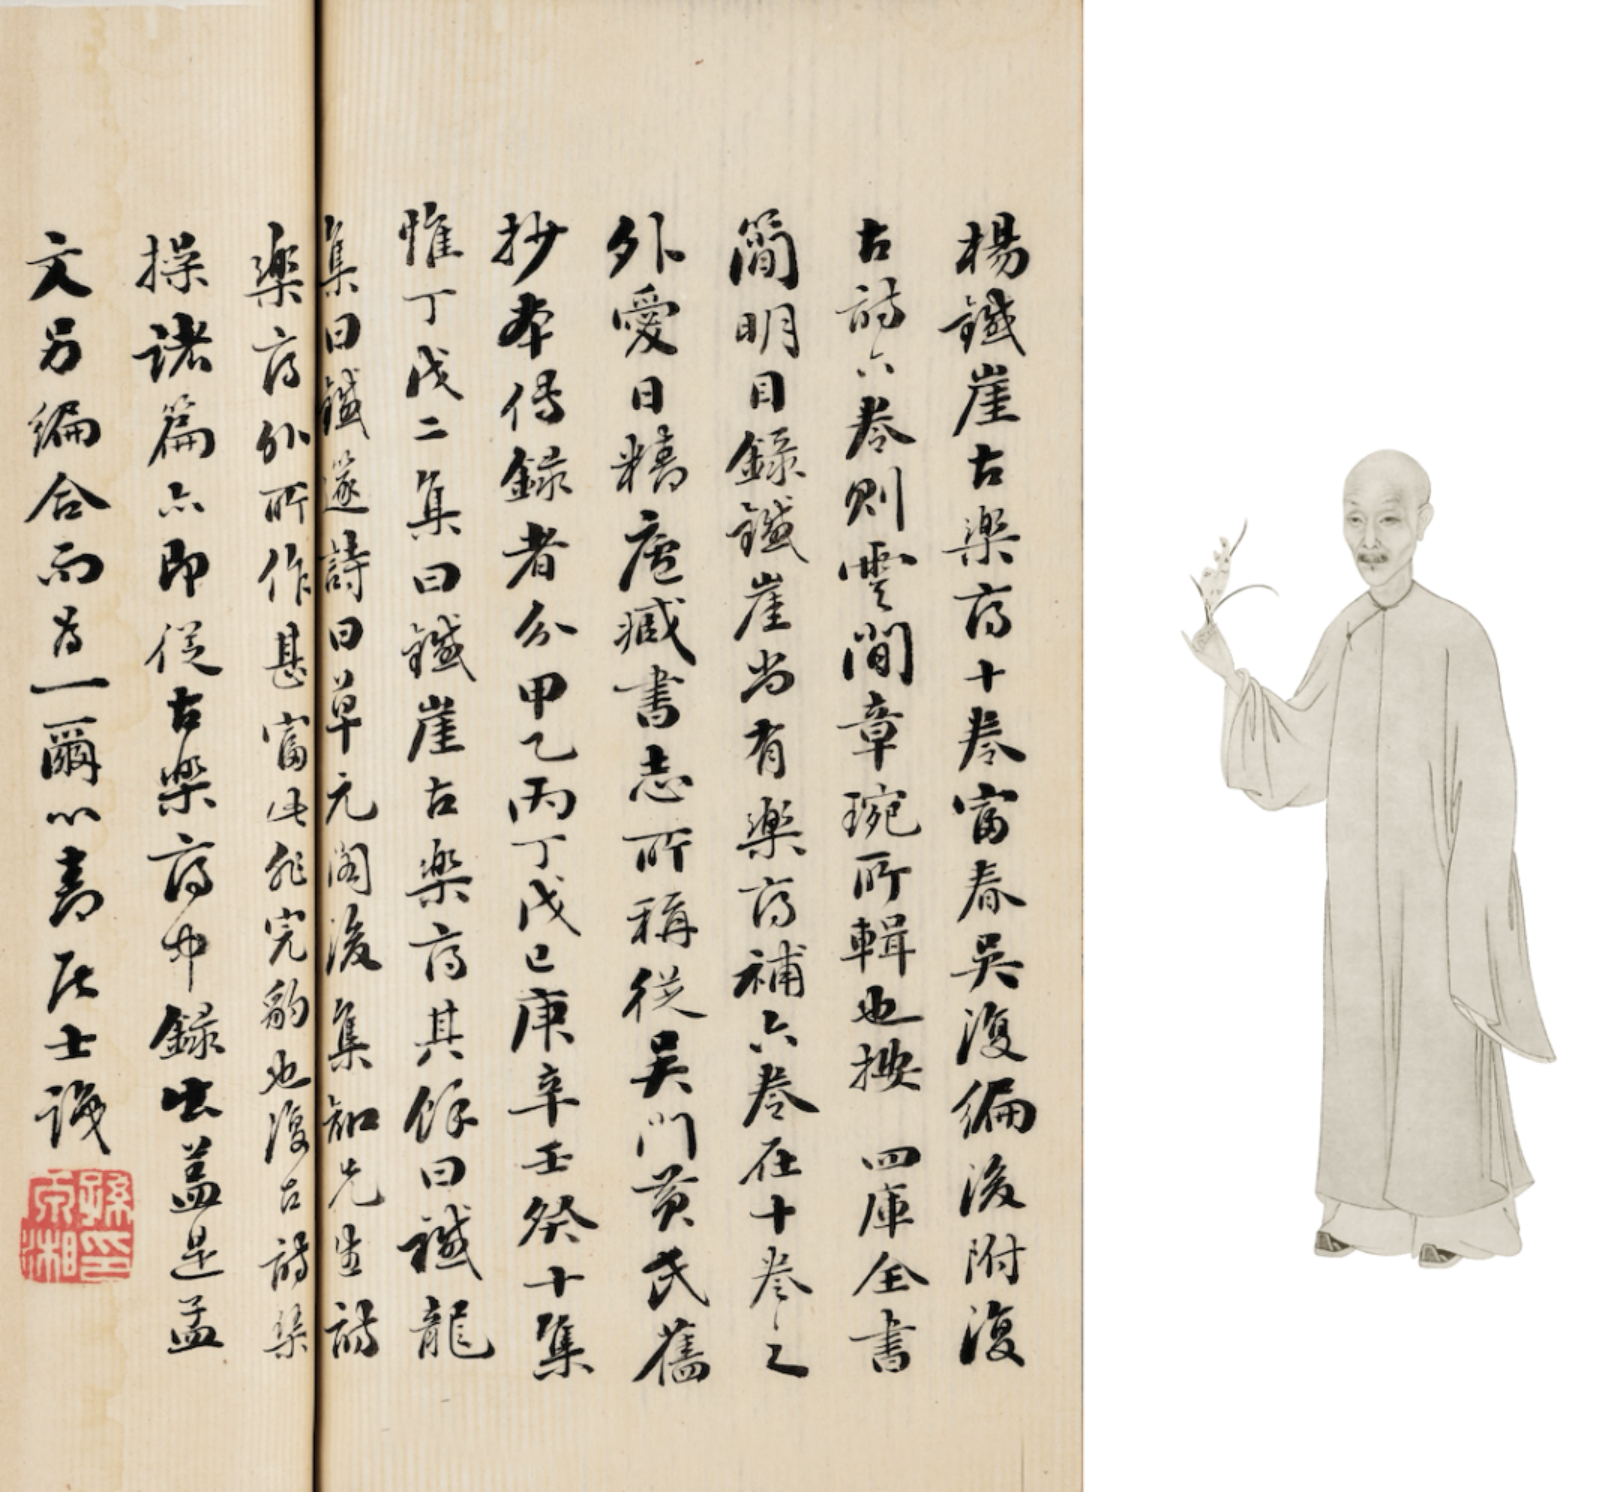 楊鐵崖古樂府十卷富春吳復編後附復
古詩六卷則雲間章琬所輯也按 四庫全書
簡明目錄鐵崖尚有樂府補六卷在十卷之
外愛日精廬藏書志所稱從吳門黃氏舊
抄本傳錄者分甲乙丙丁戊己庚辛壬癸十集
惟丁戊二集曰鐵崖古樂府其餘曰鐵龍
集曰鐵篴詩曰草元閣後集知先生詩
樂府外所作甚富此非完豹也復古詩琴
操諸篇六即從古樂府中錄出蓋是孟
文另編合而為一爾心青居士識
孫印原湘